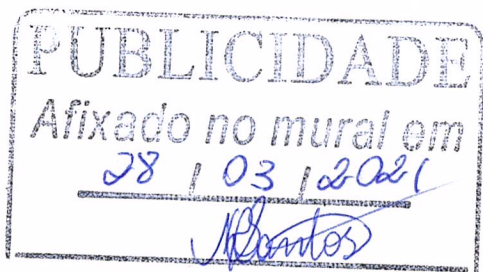 PUBLICIDADE
Afixado no mural em
28 / 03 / 2021
Santos